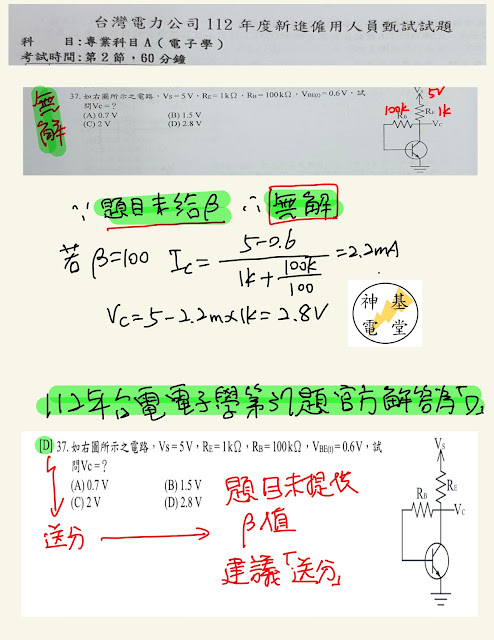 台灣電力公司 112 年度新進僱用人員甄試試題
科 目:專業科目 A(電子學)
考試時間:第 2 節,60 分鐘
無解
37. 如右圖所示之電路,VS=5 V,RE=1 kΩ,RB=100 kΩ,VBE(t)=0.6 V,試
問Vc=?
(A) 0.7 V (B) 1.5 V
(C) 2 V (D) 2.8 V
VS 5V
100k
RB
RE 1k
VC
∵ 題目未給β ∴ 無解
若 β=100 IC = (5-0.6)/(1k + 100k/100) = 2.2mA
VC = 5 - 2.2m×1k = 2.8V
神 基
電 堂
112年台電電子學第37題官方解答為「D」
[D] 37. 如右圖所示之電路,VS=5 V,RE=1 kΩ,RB=100 kΩ,VBE(t)=0.6 V,試
問Vc=?
(A) 0.7 V (B) 1.5 V
(C) 2 V (D) 2.8 V
送分
題目未提供
β值
建議「送分」
VS
RB
RE
VC